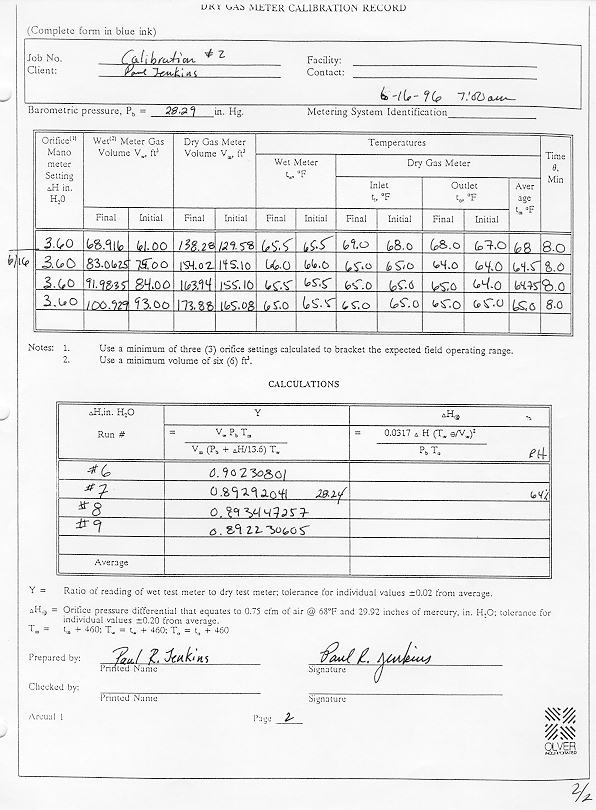 DRY GAS METER CALIBRATION RECORD
(Complete form in blue ink)
Job No. Calibration #2 Facility:
Client: Paul Jenkins Contact:
6-16-96 7:00 am
Barometric pressure, Pb = 28.29 in. Hg. Metering System Identification
Orifice(1) Mano meter Setting ΔH in. H2O
Wet(2) Meter Gas Volume Vw, ft³
Dry Gas Meter Volume Vm, ft³
Temperatures
Wet Meter tw, °F
Dry Gas Meter
Inlet ti, °F
Outlet to, °F
Aver age tm °F
Time θ, Min
Final Initial Final Initial Final Initial Final Initial Final Initial
3.60 68.916 61.00 138.28 129.58 65.5 65.5 69.0 68.0 68.0 67.0 68 8.0
6/16 3.60 83.0625 75.00 154.02 145.10 66.0 66.0 65.0 65.0 64.0 64.0 64.5 8.0
3.60 91.9835 84.00 163.94 155.10 65.5 65.5 65.0 65.0 65.0 64.0 64.75 8.0
3.60 100.929 93.00 173.88 165.08 65.0 65.5 65.0 65.0 65.0 65.0 65.0 8.0
Notes: 1. Use a minimum of three (3) orifice settings calculated to bracket the expected field operating range.
2. Use a minimum volume of six (6) ft³.
CALCULATIONS
ΔH, in. H2O Y ΔH@
Run # = Vw Pb Tm / Vm (Pb + ΔH/13.6) Tw = 0.0317 Δ H (Tw θ/Vw)² / Pb To RH
#6 0.90230801
#7 0.89292041 28.24 64%
#8 0.893447257
#9 0.892230605
Average
Y = Ratio of reading of wet test meter to dry test meter; tolerance for individual values ±0.02 from average.
ΔH@ = Orifice pressure differential that equates to 0.75 cfm of air @ 68°F and 29.92 inches of mercury, in. H2O; tolerance for
individual values ±0.20 from average.
Tm = tm + 460; Tw = tw + 460; To = to + 460
Prepared by: Paul R. Jenkins Paul R. Jenkins
Printed Name Signature
Checked by:
Printed Name Signature
Page 2
OLVER
INCORPORATED
2/2